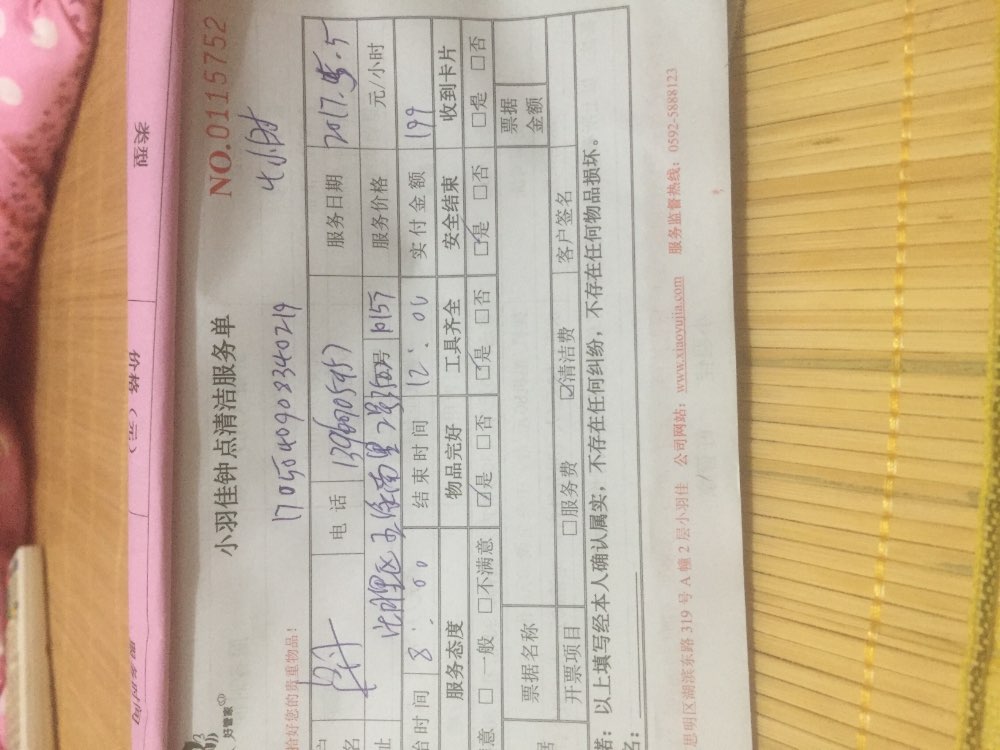 类型
价格（元）
好管家
小羽佳钟点清洁服务单
NO.0115752
恰好您的贵重物品！
17050540908340219
4小时
电话
服务日期 2017.5.5
服务价格 元/小时
始时间 8:00 结束时间 12:00 实付金额 199
服务态度 物品完好 工具齐全 安全结束 收到卡片
意 □ 一般 □不满意 ☑是 □否 ☑是 □否 ☑是 □否 □是 □否
票据名称 票据金额
开票项目 □服务费 ☑清洁费 客户签名
若：以上填写经本人确认属实，不存在任何纠纷，不存在任何物品损坏。
名：
思明区湖滨东路 319 号 A 幢 2 层小羽佳 公司网站：www.xiaoyujia.com 服务监督热线：0592-5888123